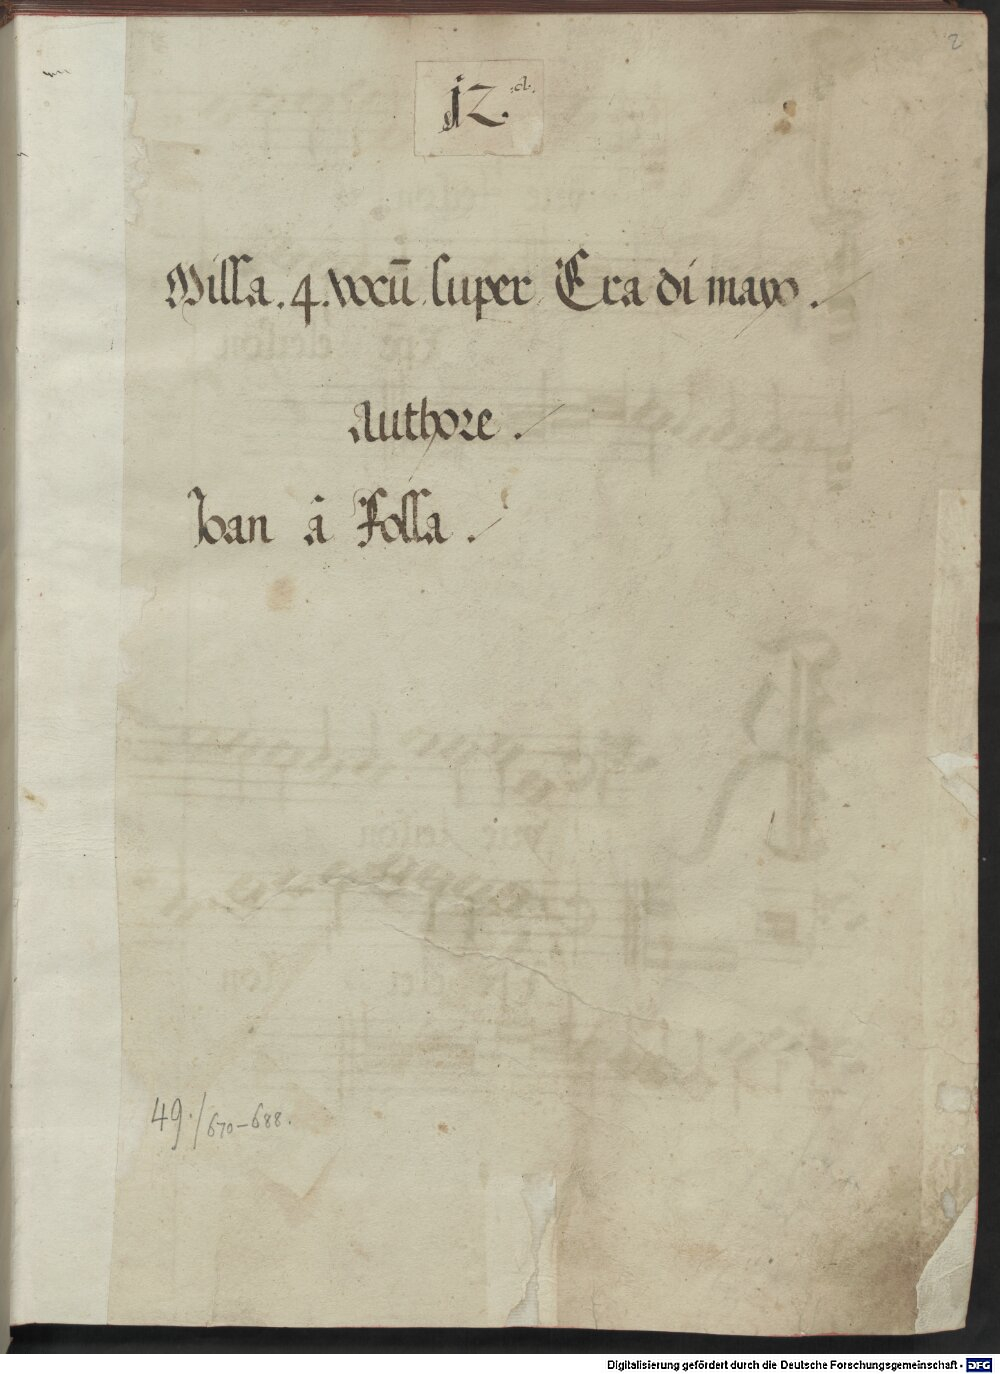 2
12. .a.
Missa. 4. vocū super Era di mayo.
Authore.
Joan â Fossa.
49./670-688.
Digitalisierung gefördert durch die Deutsche Forschungsgemeinschaft - DFG